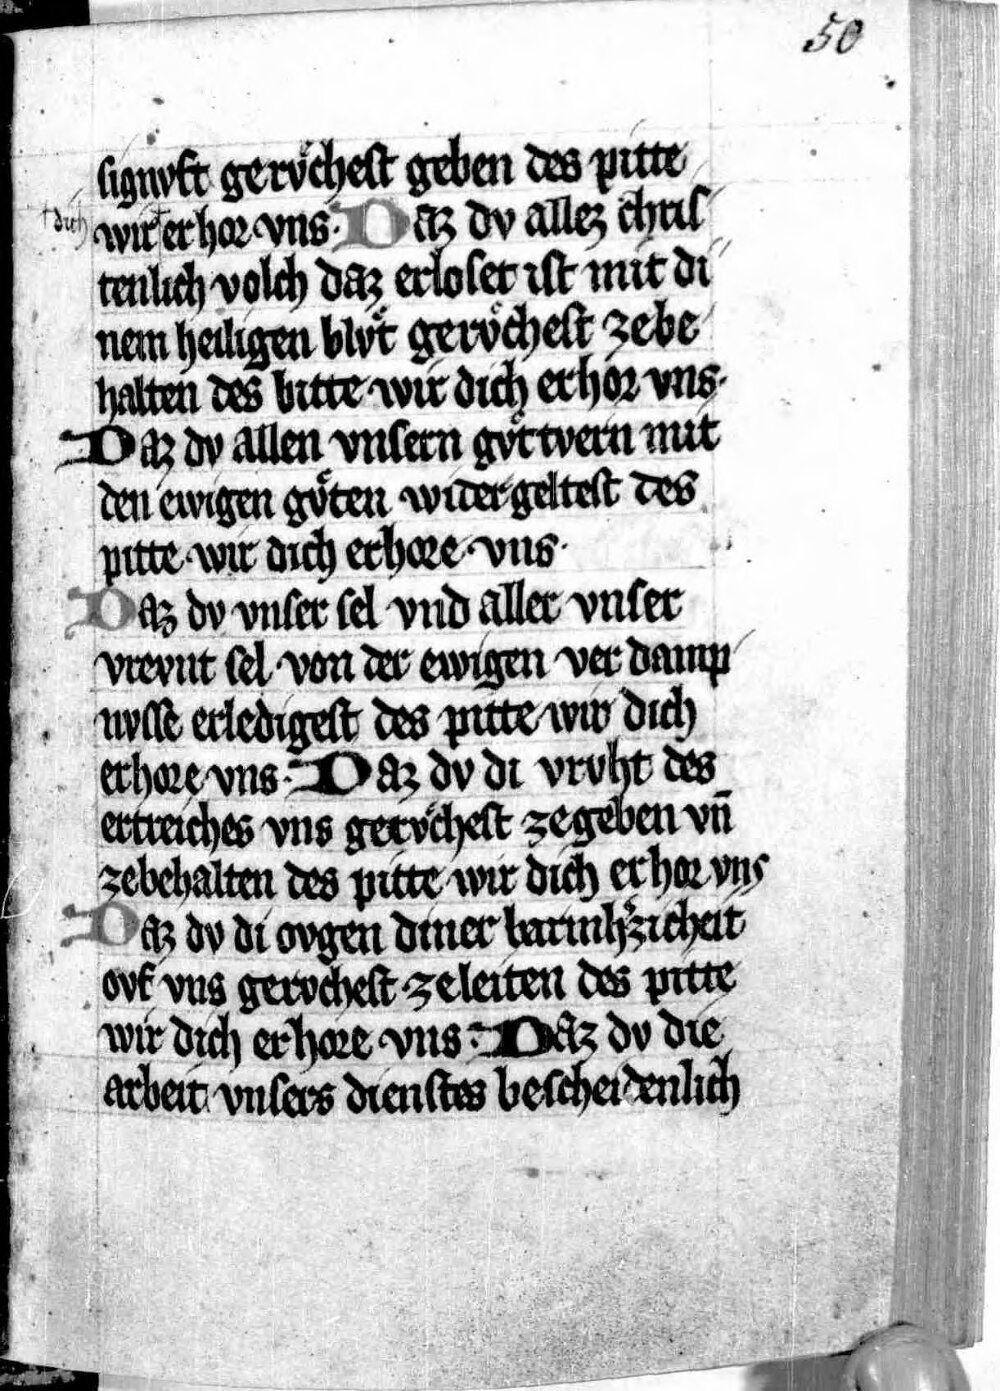 50
signvft gervͦchest geben des pitte
† dich wir † erhor vns. Daz dv allez chris
tenlich volch daz erloset ist mit di
nem heiligen blvͦt gervͦchest zebe
halten des bitte wir dich erhor vns.
Daz dv allen vnsern gvͦttvern mit
den ewigen gvͦten widergeltest des
pitte wir dich erhore vns.
Daz dv vnser sel vnd aller vnser
vrevnt sel von der ewigen verdamp
nvsse erledigest des pitte wir dich
erhore vns. Daz dv di vrvht des
ertreiches vns gervͦchest zegeben vn̄
zebehalten des pitte wir dich erhor vns
Daz dv di ovgen diner barmhʼzicheit
ovf vns gervchest zeleiten des pitte
wir dich erhore vns. Daz dv die
arbeit vnsers dienstes bescheidenlich